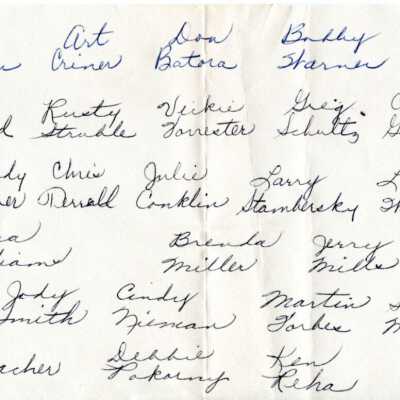 Art Don Bobby
Criner Batora Starner
Rusty Vickie Greg
Struble Forrester Schultz
Chris Julie Larry
Derrald Conklin Stambersky
Brenda Jerry
Miller Mills
Jody Cindy Martin
Smith Nieman Forbes
Debbie Ken
acher Pokorny Keha